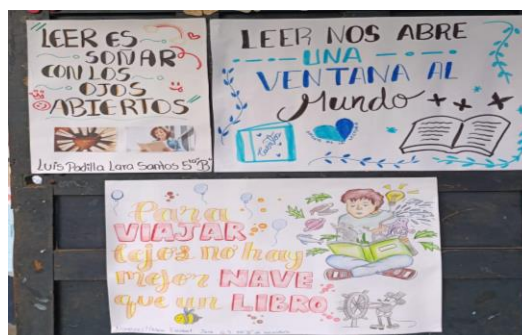 LEER ES
SOÑAR
CON LOS
OJOS
ABIERTOS
Luis Padilla Lara Santos 5to B
LEER NOS ABRE
UNA
VENTANA AL
Mundo
Para
VIAJAR
lejos no hay
mejor NAVE
que un LIBRO